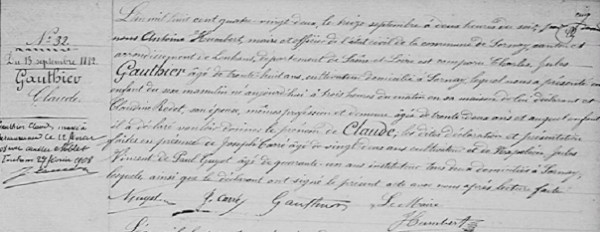 N° 32.
Du 13 septembre 1882
Gauthier
Claude.
Gauthier Claude, marié à
ce 12 février
27 février 1908
L'an mil huit cent quatre vingt deux, le treize septembre à deux heures du soir, par
nous Antoine Humbert, maire et officier de l'état civil de la commune de Sornay, canton et
arrondissement de Louhans, département de Saône et Loire est comparu Charles Jules
Gauthier âgé de trente huit ans, cultivateur domicilié à Sornay, lequel nous a présenté un
enfant du sexe masculin né aujourd'hui à trois heures du matin en sa maison de lui déclarant et
Claudine Rebet, son épouse, même profession et demeure âgée de trente deux ans et auquel enfant
il a déclaré vouloir donner le prénom de Claude, les dites déclaration et présentation
faites en présence de Joseph âgé de vingt deux ans cultivateur et de Jules
Vincent de Paul Guyot âgé de quarante un ans instituteur tous deux domiciliés à Sornay,
lesquels ainsi que le déclarant ont signé le présent acte avec nous après lecture faite.
Guyot Gauthier Le Maire
Humbert